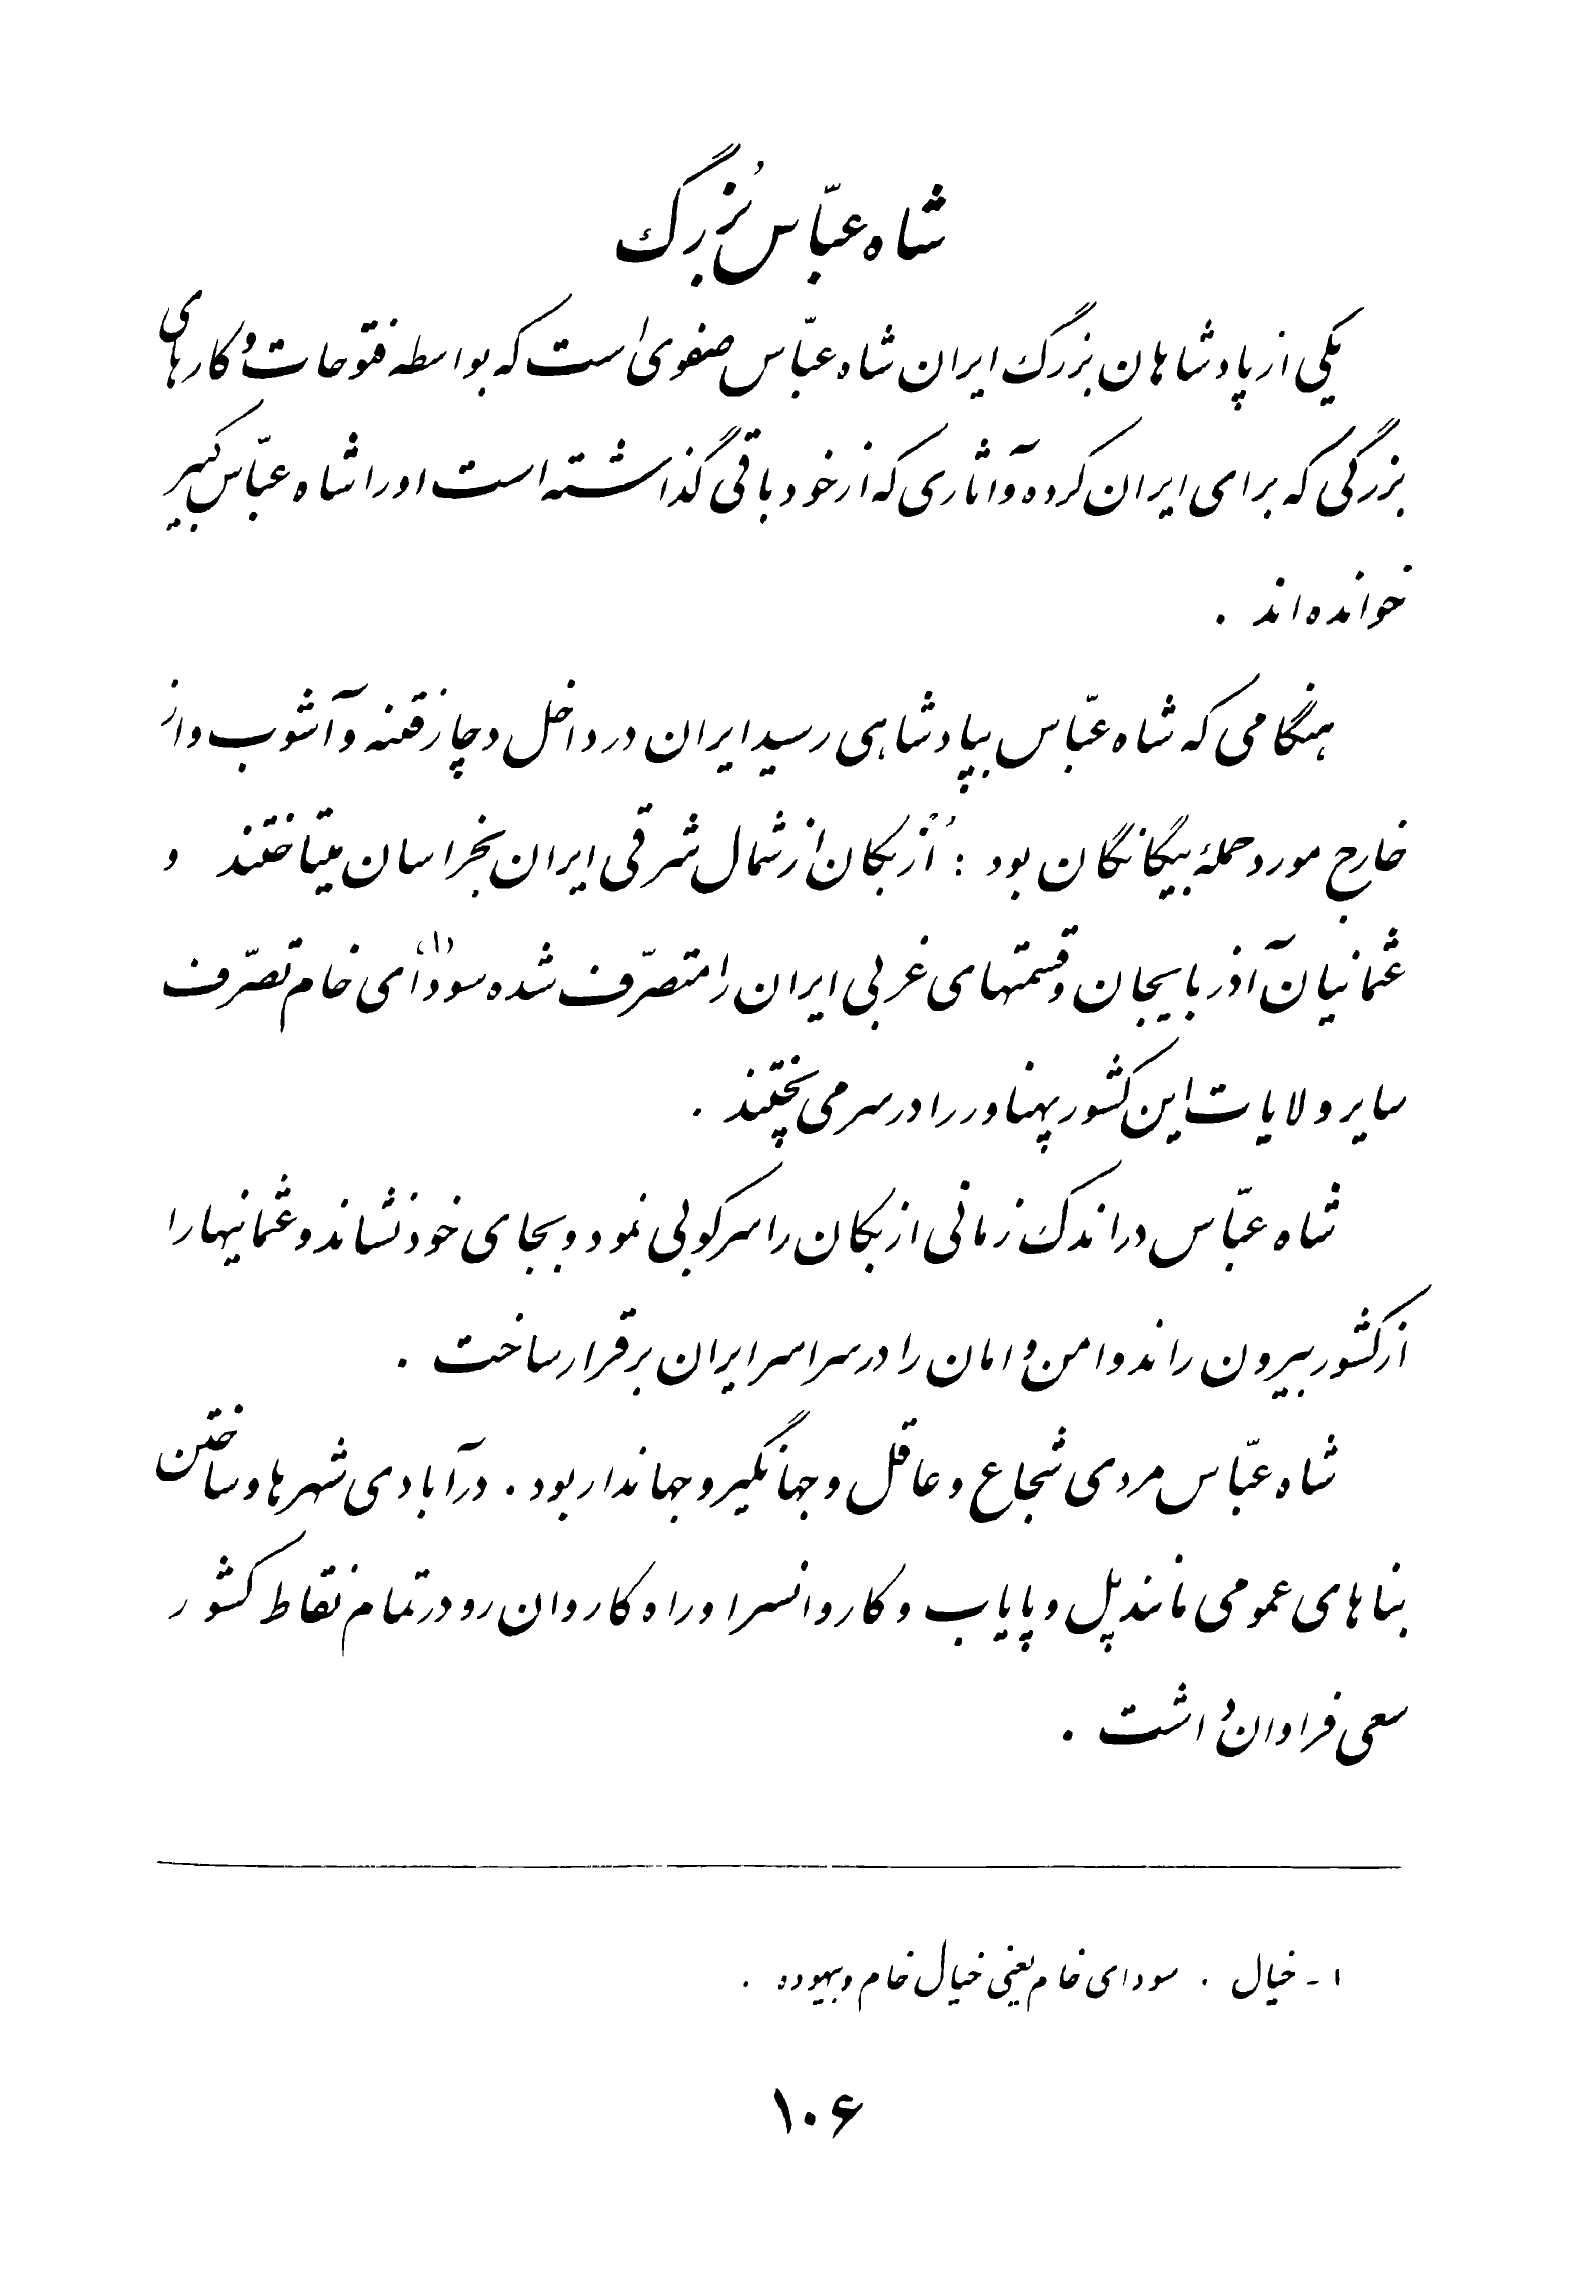 شاه عبّاس بُزرگ
یکی از پادشاهان بزرگ ایران شاه عبّاس صفوی است که بواسطه فتوحات و کارهای
بزرگی که برای ایران کرده و آثاری که از خود باقی گذاشته است او را شاه عبّاس کبیر
خوانده‌اند .
هنگامی که شاه عبّاس بپادشاهی رسید ایران در داخل دچار فتنه و آشوب و از
خارج مورد حملهٔ بیگانگان بود : اُزبکان از شمال شرقی ایران بخراسان میتاختند و
عثمانیان آذربایجان و قسمتهای غربی ایران را متصرّف شده سودای (۱) خام تصرّف
سایر ولایات این کشور پهناور را در سر می پختند .
شاه عبّاس در اندک زمانی ازبکان را سرکوبی نمود و بجای خود نشاند و عثمانیها را
از کشور بیرون راند و امن و امان را در سراسر ایران برقرار ساخت .
شاه عبّاس مردی شجاع و عاقل و جهانگیر و جهاندار بود . در آبادی شهرها و ساختن
بناهای عمومی مانند پل و پایاب و کاروانسرا و راه کاروان رو در تمام نقاط کشور
سعی فراوان داشت .
۱ - خیال . سودای خام یعنی خیال خام و بیهوده .
۱۰۶